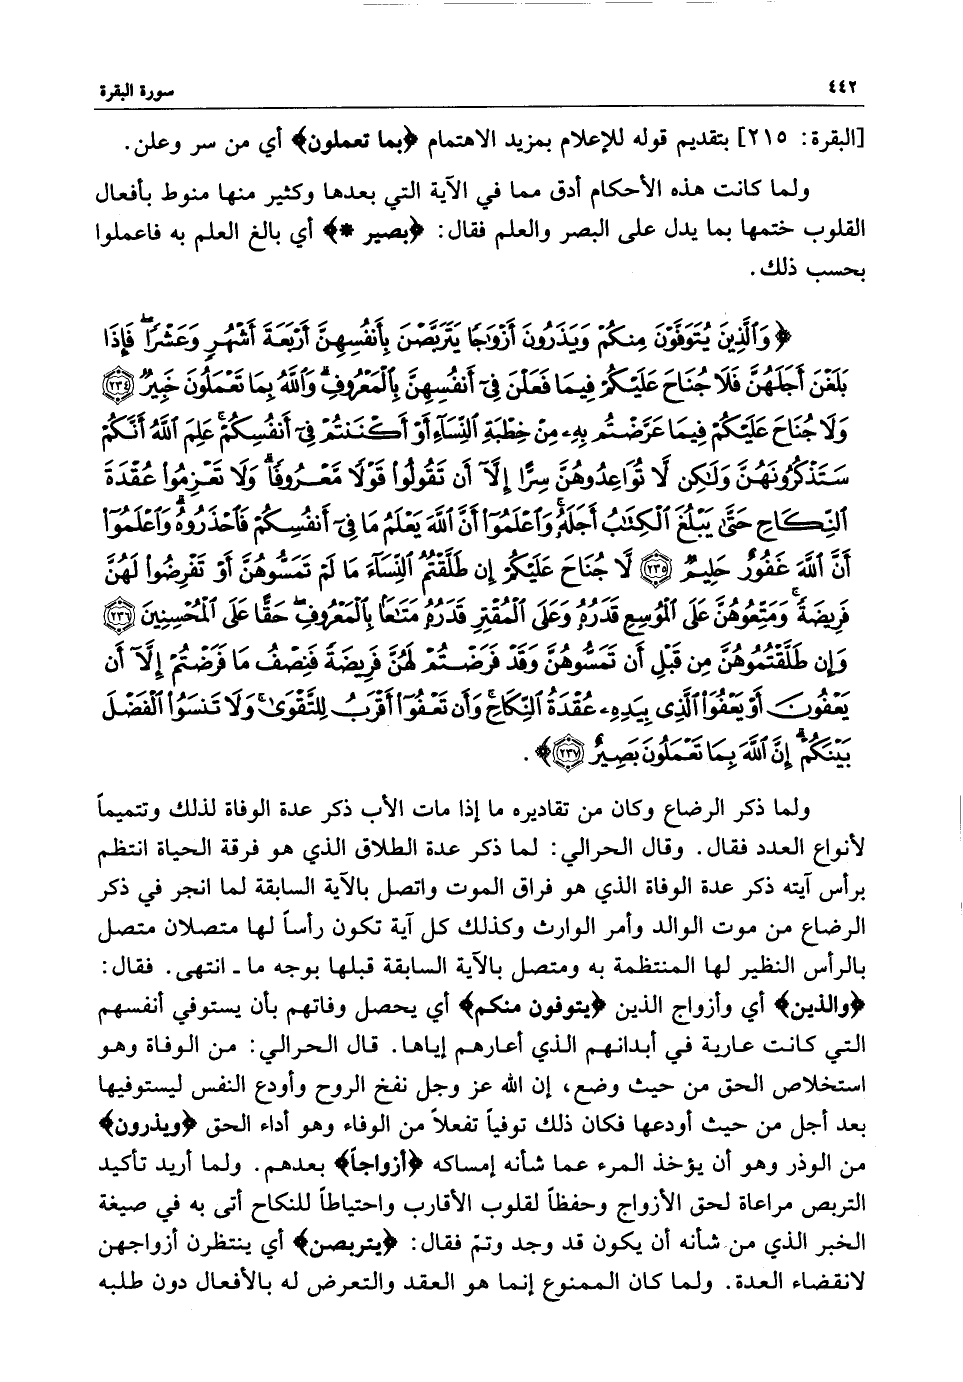 ٤٤٢
سورة البقرة
[البقرة: ٢١٥] بتقديم قوله للإعلام بمزيد الاهتمام ﴿بما تعملون﴾ أي من سر وعلن.
ولما كانت هذه الأحكام أدق مما في الآية التي بعدها وكثير منها منوط بأفعال
القلوب ختمها بما يدل على البصر والعلم فقال: ﴿بصير *﴾ أي بالغ العلم به فاعملوا
بحسب ذلك.
﴿وَٱلَّذِينَ يُتَوَفَّوْنَ مِنكُمْ وَيَذَرُونَ أَزْوَٰجًا يَتَرَبَّصْنَ بِأَنفُسِهِنَّ أَرْبَعَةَ أَشْهُرٍ وَعَشْرًا ۖ فَإِذَا
بَلَغْنَ أَجَلَهُنَّ فَلَا جُنَاحَ عَلَيْكُمْ فِيمَا فَعَلْنَ فِىٓ أَنفُسِهِنَّ بِٱلْمَعْرُوفِ ۗ وَٱللَّهُ بِمَا تَعْمَلُونَ خَبِيرٌ ﴿٢٣٤﴾
وَلَا جُنَاحَ عَلَيْكُمْ فِيمَا عَرَّضْتُم بِهِۦ مِنْ خِطْبَةِ ٱلنِّسَآءِ أَوْ أَكْنَنتُمْ فِىٓ أَنفُسِكُمْ ۚ عَلِمَ ٱللَّهُ أَنَّكُمْ
سَتَذْكُرُونَهُنَّ وَلَٰكِن لَّا تُوَاعِدُوهُنَّ سِرًّا إِلَّآ أَن تَقُولُوا۟ قَوْلًا مَّعْرُوفًا ۚ وَلَا تَعْزِمُوا۟ عُقْدَةَ
ٱلنِّكَاحِ حَتَّىٰ يَبْلُغَ ٱلْكِتَٰبُ أَجَلَهُۥ ۚ وَٱعْلَمُوٓا۟ أَنَّ ٱللَّهَ يَعْلَمُ مَا فِىٓ أَنفُسِكُمْ فَٱحْذَرُوهُ ۚ وَٱعْلَمُوٓا۟
أَنَّ ٱللَّهَ غَفُورٌ حَلِيمٌ ﴿٢٣٥﴾ لَّا جُنَاحَ عَلَيْكُمْ إِن طَلَّقْتُمُ ٱلنِّسَآءَ مَا لَمْ تَمَسُّوهُنَّ أَوْ تَفْرِضُوا۟ لَهُنَّ
فَرِيضَةً ۚ وَمَتِّعُوهُنَّ عَلَى ٱلْمُوسِعِ قَدَرُهُۥ وَعَلَى ٱلْمُقْتِرِ قَدَرُهُۥ مَتَٰعًۢا بِٱلْمَعْرُوفِ ۖ حَقًّا عَلَى ٱلْمُحْسِنِينَ ﴿٢٣٦﴾
وَإِن طَلَّقْتُمُوهُنَّ مِن قَبْلِ أَن تَمَسُّوهُنَّ وَقَدْ فَرَضْتُمْ لَهُنَّ فَرِيضَةً فَنِصْفُ مَا فَرَضْتُمْ إِلَّآ أَن
يَعْفُونَ أَوْ يَعْفُوَا۟ ٱلَّذِى بِيَدِهِۦ عُقْدَةُ ٱلنِّكَاحِ ۚ وَأَن تَعْفُوٓا۟ أَقْرَبُ لِلتَّقْوَىٰ ۚ وَلَا تَنسَوُا۟ ٱلْفَضْلَ
بَيْنَكُمْ ۚ إِنَّ ٱللَّهَ بِمَا تَعْمَلُونَ بَصِيرٌ ﴿٢٣٧﴾﴾.
ولما ذكر الرضاع وكان من تقاديره ما إذا مات الأب ذكر عدة الوفاة لذلك وتتميماً
لأنواع العدد فقال. وقال الحرالي: لما ذكر عدة الطلاق الذي هو فرقة الحياة انتظم
برأس آيته ذكر عدة الوفاة الذي هو فراق الموت واتصل بالآية السابقة لما انجر في ذكر
الرضاع من موت الوالد وأمر الوارث وكذلك كل آية تكون رأساً لها متصلان متصل
بالرأس النظير لها المنتظمة به ومتصل بالآية السابقة قبلها بوجه ما ـ انتهى. فقال:
﴿والذين﴾ أي وأزواج الذين ﴿يتوفون منكم﴾ أي يحصل وفاتهم بأن يستوفي أنفسهم
التي كانت عارية في أبدانهم الذي أعارهم إياها. قال الحرالي: من الوفاة وهو
استخلاص الحق من حيث وضع، إن الله عز وجل نفخ الروح وأودع النفس ليستوفيها
بعد أجل من حيث أودعها فكان ذلك توفياً تفعلاً من الوفاء وهو أداء الحق ﴿ويذرون﴾
من الوذر وهو أن يؤخذ المرء عما شأنه إمساكه ﴿أزواجاً﴾ بعدهم. ولما أريد تأكيد
التربص مراعاة لحق الأزواج وحفظاً لقلوب الأقارب واحتياطاً للنكاح أتى به في صيغة
الخبر الذي من شأنه أن يكون قد وجد وتمّ فقال: ﴿يتربصن﴾ أي ينتظرن أزواجهن
لانقضاء العدة. ولما كان الممنوع إنما هو العقد والتعرض له بالأفعال دون طلبه